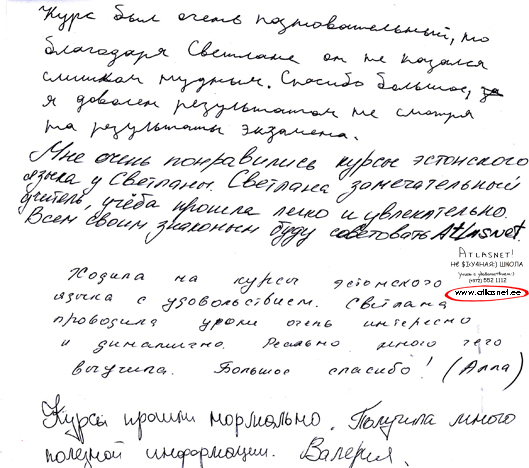 Курс был очень познавательный, но
благодаря Светлане он не казался
слишком нудным. Спасибо большое,
я доволен результатом не смотря
на результаты экзамена.
Мне очень понравились курсы эстонского
языка у Светланы. Светлана замечательный
учитель, учёба прошла легко и увлекательно.
Всем своим знакомым буду советовать Atlasnet.
ATLASNET!
НЕ $КУЧНАЯ:) ШКОЛА
учим с удовольствием:)
(+372) 552 1112
www.atlasnet.ee
Ходила на курсы эстонского
языка с удовольствием. Светлана
проводила уроки очень интересно
и динамично. Реально много чего
выучила. Большое спасибо! (Алла)
Курсы прошли нормально. Получила много
полезной информации. Валерия.